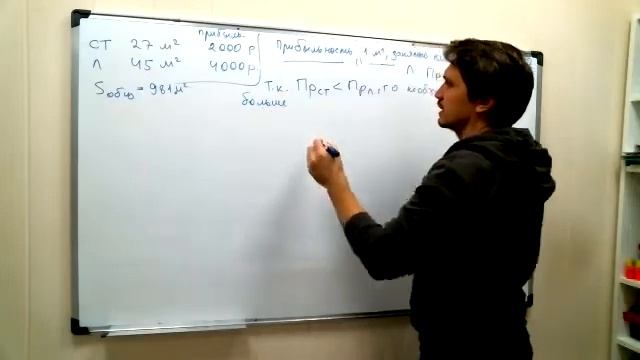 прибыль
СТ 27 м² 2000 р
Л 45 м² 4000р
Sобщ = 981м²
Прибыльность 1 м², занятого
— " —
Л Пр
Т.к. Прст < Прл, то необх
больше